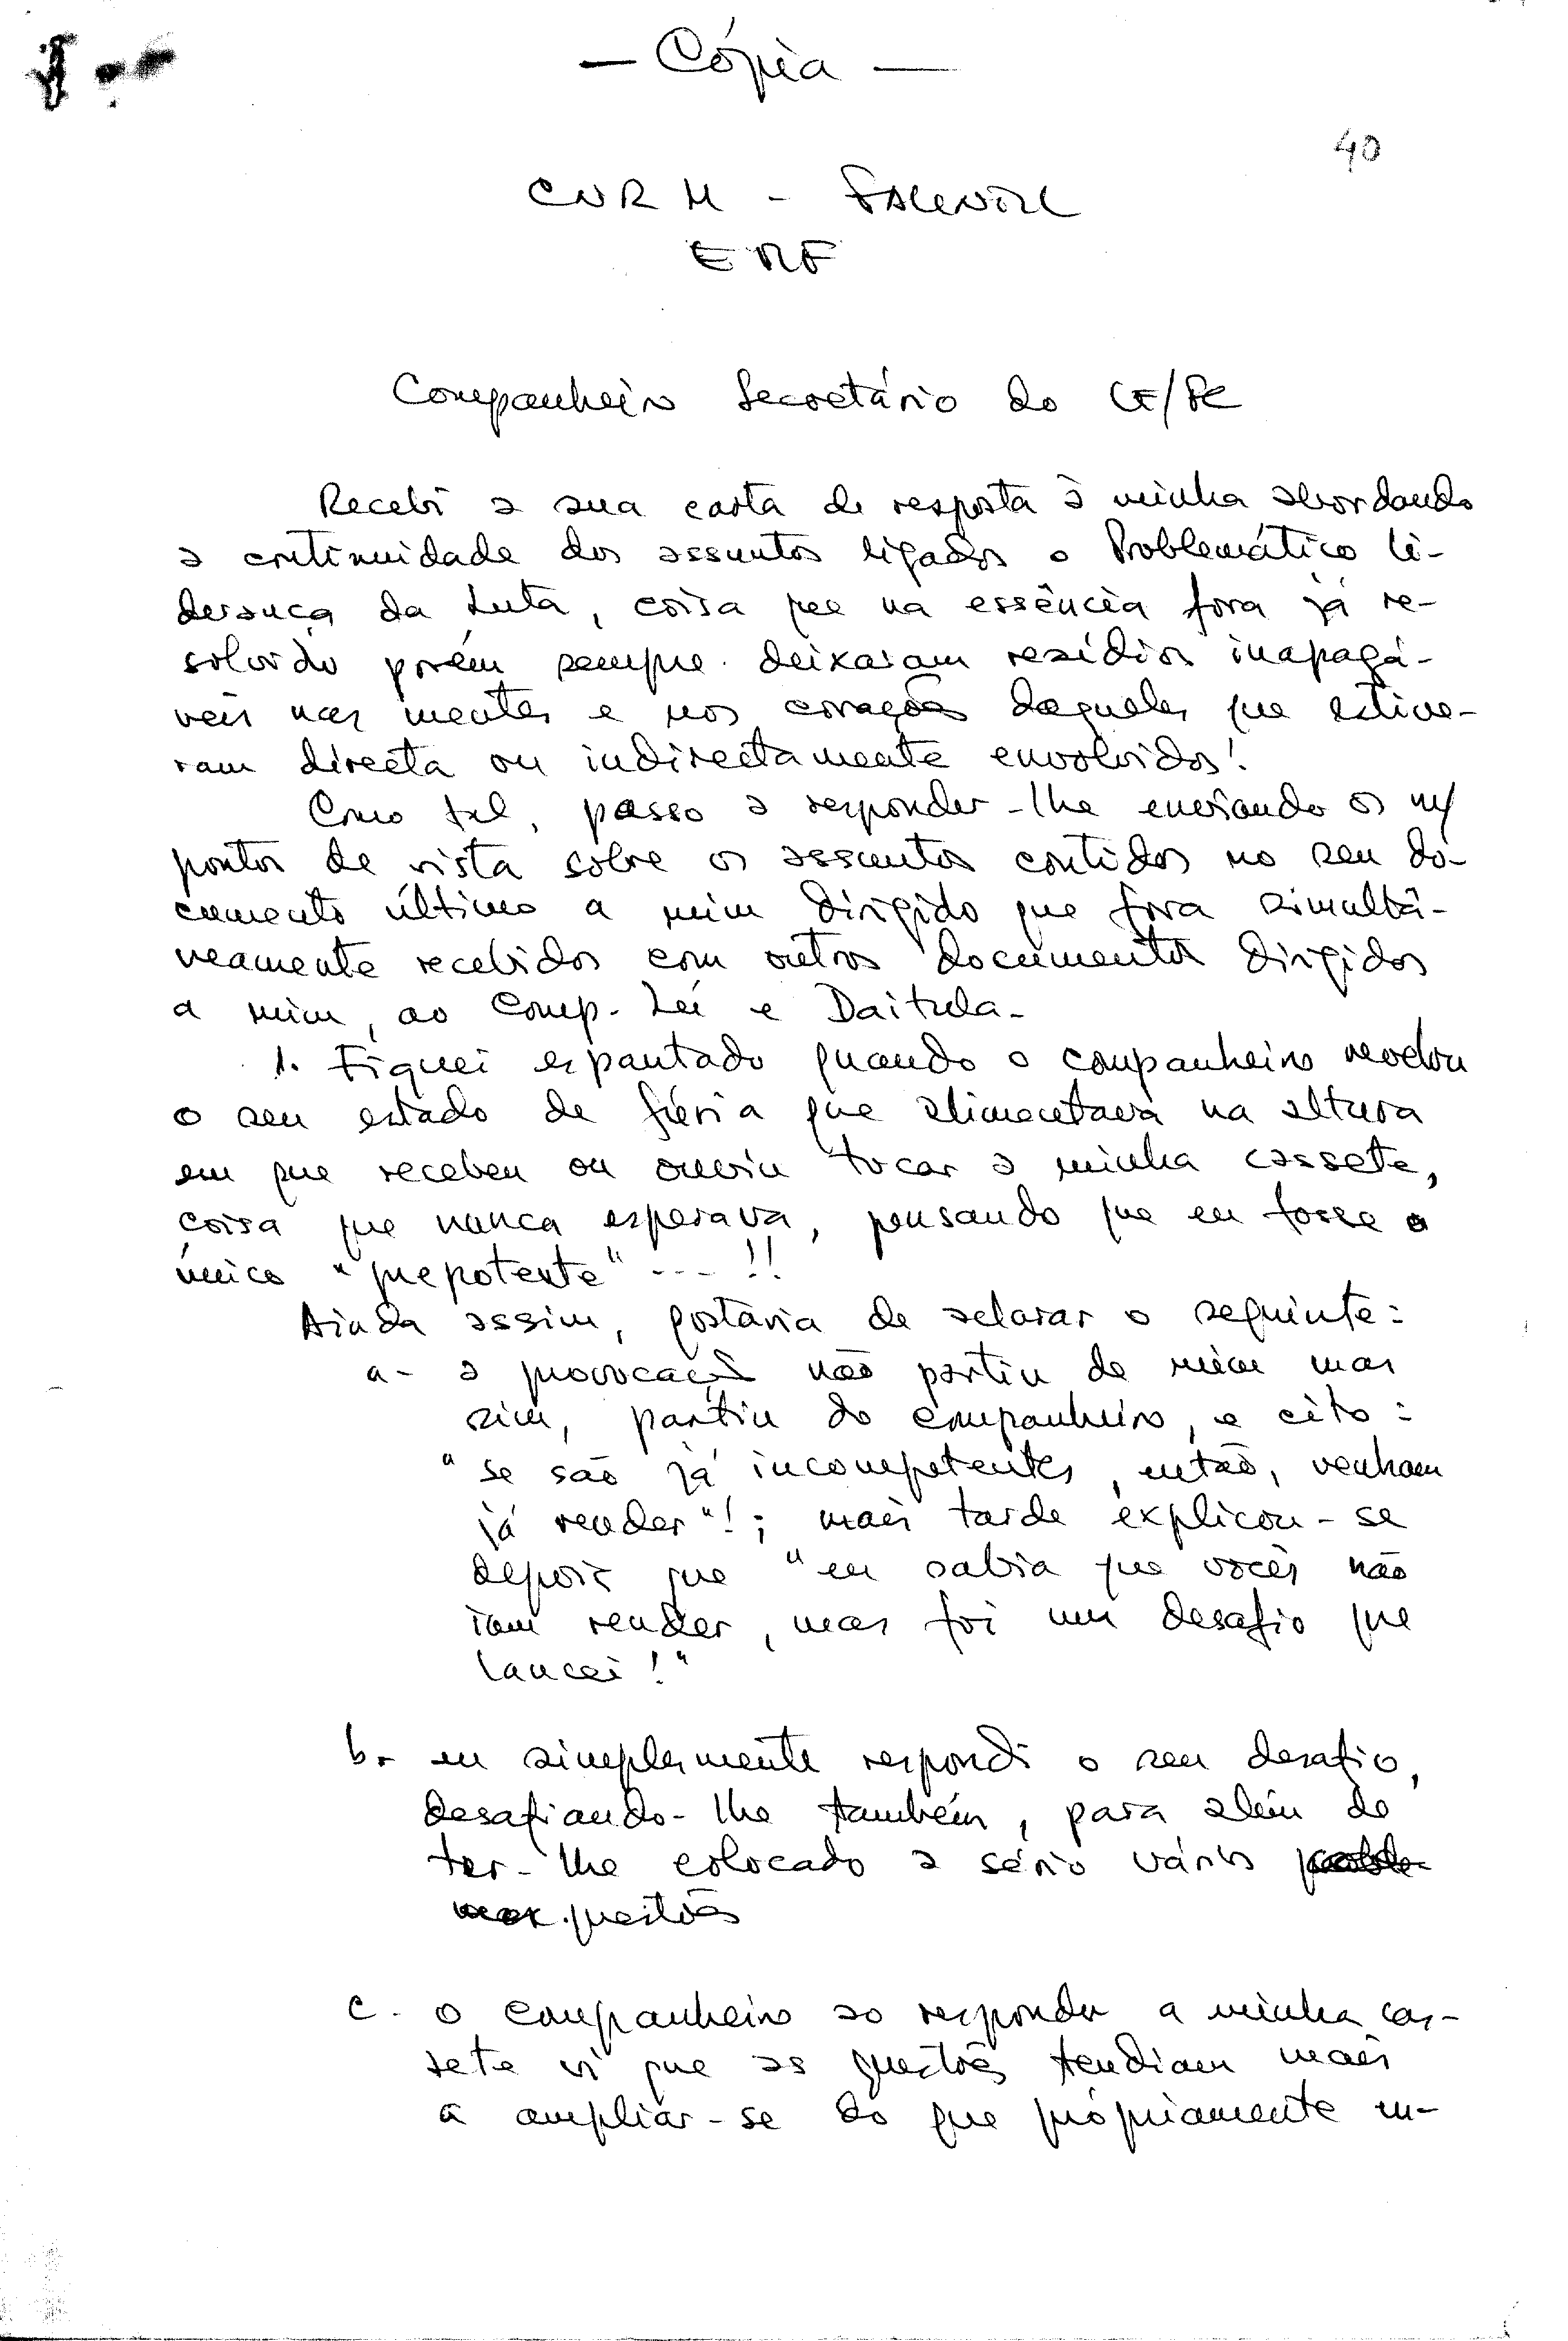 — Cópia —
40
CNRM - FALINTIL
EMF
Companheiro Secretário do CE/FC
Recebi a sua carta de resposta à minha abordando
a continuidade dos assuntos ligados o Problemático li-
derança da Luta, coisa que na essência fora já re-
solvido porém sempre deixaram resídios inapagá-
veis nas mentes e nos corações daqueles que estive-
ram directa ou indirectamente envolvidos!
Como tal, passo a responder-lhe enviando os m/
pontos de vista sobre os assuntos contidos no seu do-
cumento último a mim dirigido que fora simultâ-
neamente recebidos com outros documentos dirigidos
a mim, ao Comp. Lei e Daitula.
1. Fiquei espantado quando o companheiro revelou
o seu estado de fúria que alimentava na altura
em que recebeu ou ouviu tocar a minha cassete,
coisa que nunca esperava, pensando que eu fosse o
único "prepotente" --- !!
Ainda assim, gostaria de aclarar o seguinte:
a- a provocação não partiu de mim mas
sim, partiu do companheiro, e cito:
"se são já incompetentes, então, venham
já render"!; mais tarde explicou-se
depois que "eu sabia que vocês não
iam render, mas foi um desafio que
lancei!"
b- eu simplesmente respondi o seu desafio,
desafiando-lhe também, para além de
ter-lhe colocado a sério vários proble-
mas questões
c- o companheiro ao responder a minha cas-
sete vi que as questões tendiam mais
a ampliar-se do que própriamente en-